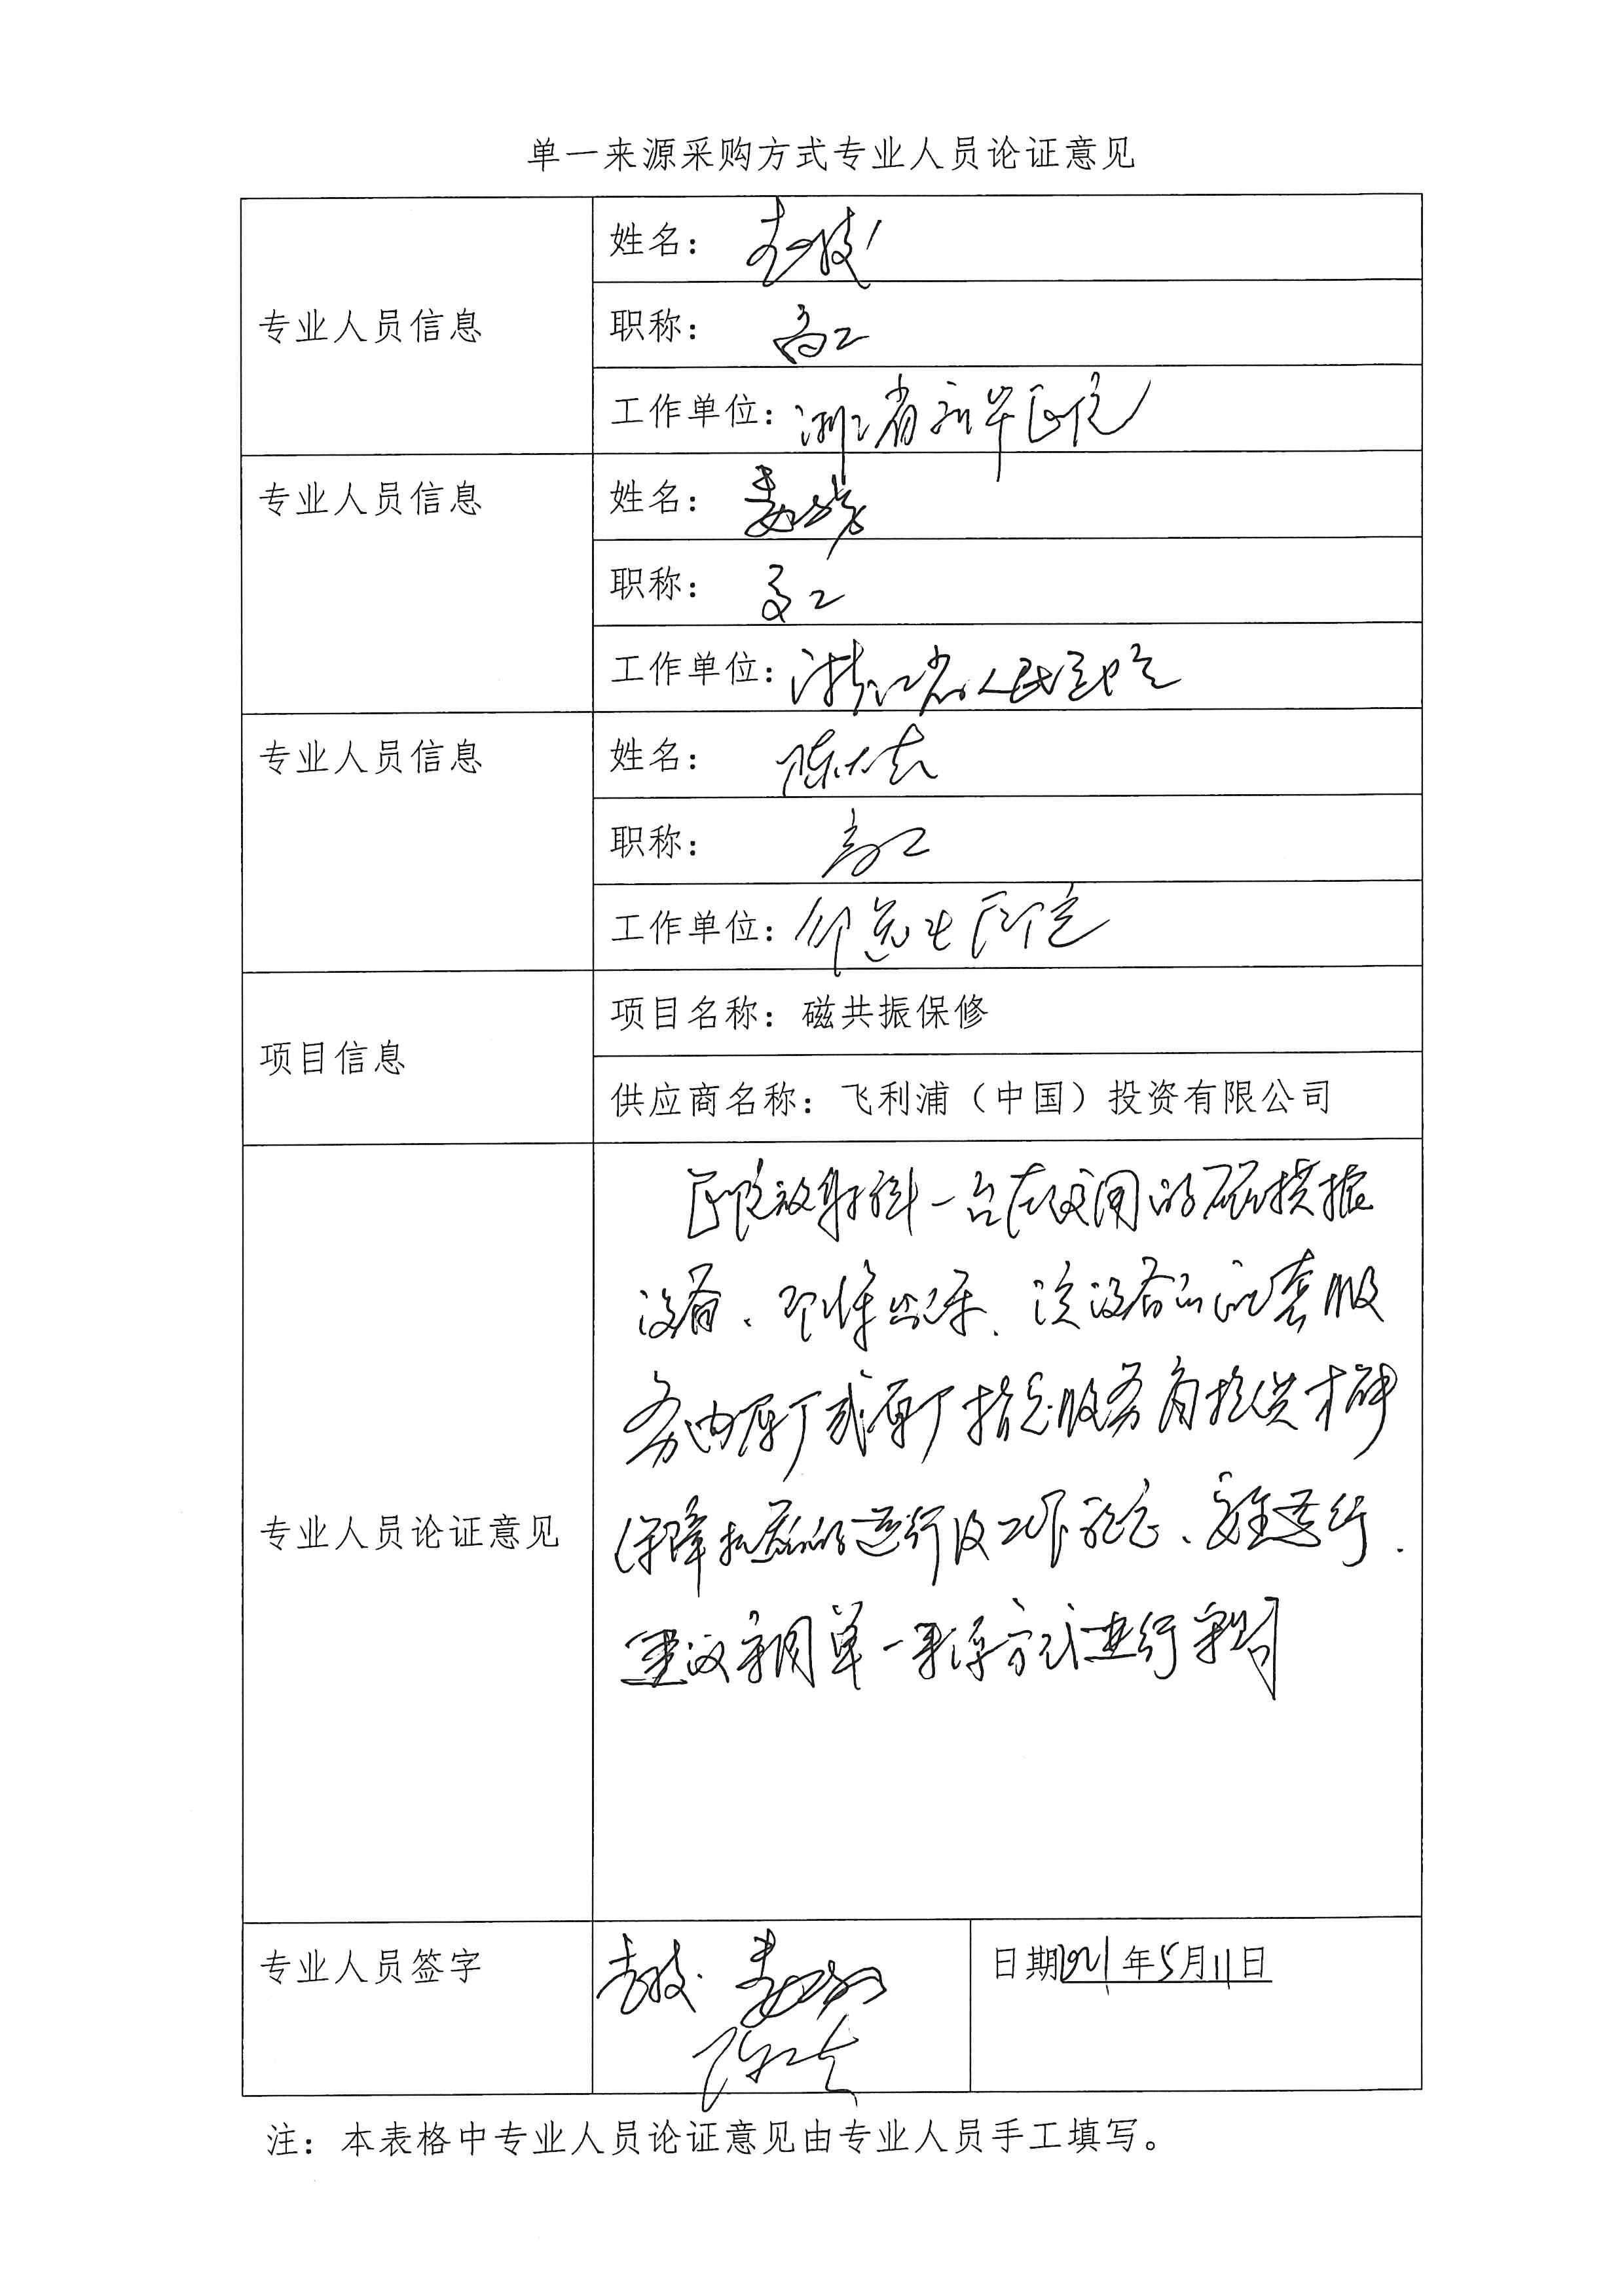 单一来源采购方式专业人员论证意见
专业人员信息
姓名：
职称：高工
工作单位：浙江省新华医院
专业人员信息
姓名：娄
职称：高工
工作单位：浙江省人民医院
专业人员信息
姓名：陈
职称：高工
工作单位：邵逸夫医院
项目信息
项目名称：磁共振保修
供应商名称：飞利浦（中国）投资有限公司
专业人员论证意见
医院放射科一台在使用的磁共振
设备，即将出保，该设备的配套服
务由原厂或原厂指定服务商提供才能
保障机器的运行及工作稳定、安全运行.
建议采用单一来源方式进行采购
专业人员签字
日期2021年5月11日
注：本表格中专业人员论证意见由专业人员手工填写。